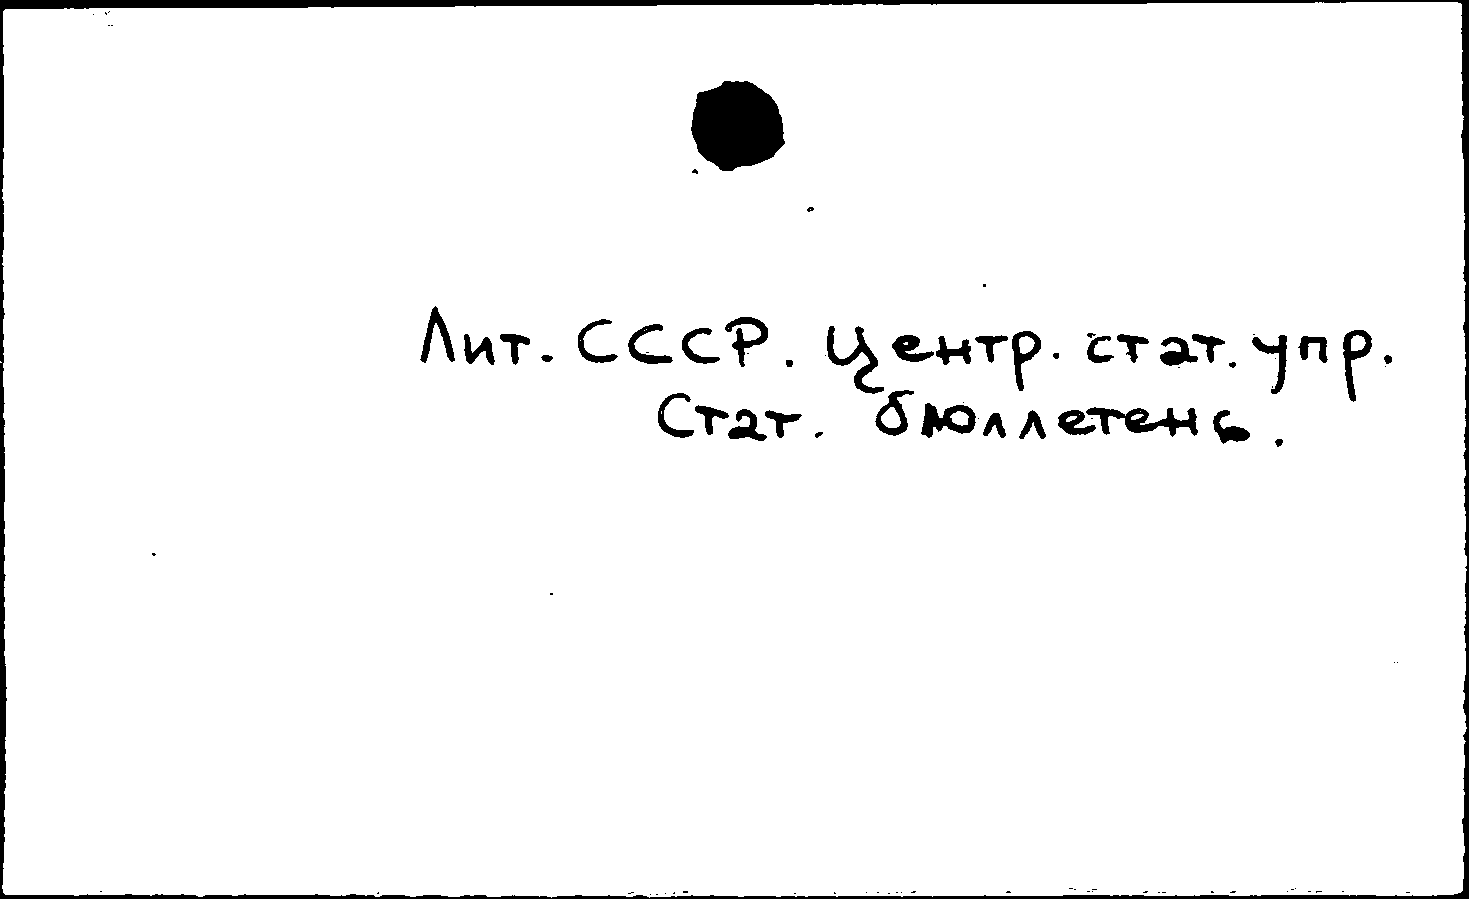 Лит. СССР. Центр. стат. упр.
Стат. бюллетень.